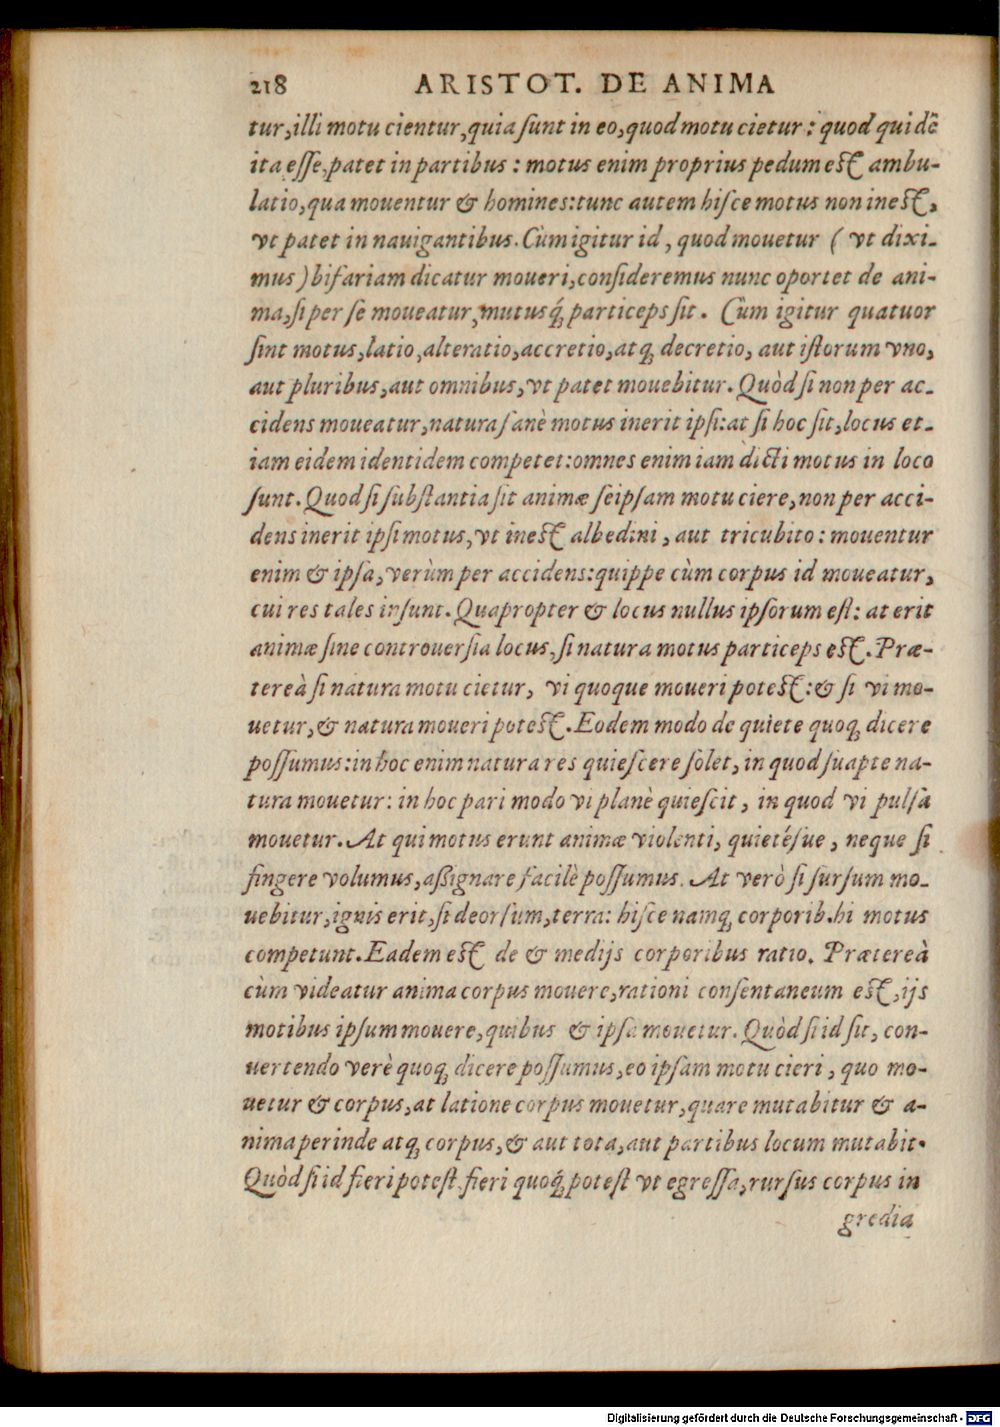 218 ARISTOT. DE ANIMA
tur, illi motu cientur, quia ſunt in eo, quod motu cietur: quod quidē
ita eſſe, patet in partibus: motus enim proprius pedum eſt ambu-
latio, qua mouentur & homines: tunc autem hiſce motus non ineſt,
vt patet in nauigantibus. Cùm igitur id, quod mouetur (vt dixi-
mus) bifariam dicatur moueri, conſideremus nunc oportet de ani-
ma, ſi per ſe moueatur, mutusq́; particeps ſit. Cùm igitur quatuor
ſint motus, latio, alteratio, accretio, atq; decretio, aut iſtorum vno,
aut pluribus, aut omnibus, vt patet mouebitur. Quòd ſi non per ac-
cidens moueatur, natura ſanè motus inerit ipſi: at ſi hoc ſit, locus et-
iam eidem identidem competet: omnes enim iam dicti motus in loco
ſunt. Quod ſi ſubſtantia ſit animæ ſeipſam motu ciere, non per acci-
dens inerit ipſi motus, vt ineſt albedini, aut tricubito: mouentur
enim & ipſa, verùm per accidens: quippe cùm corpus id moueatur,
cui res tales inſunt. Quapropter & locus nullus ipſorum eſt: at erit
animæ ſine controuerſia locus, ſi natura motus particeps eſt. Præ-
tereà ſi natura motu cietur, vi quoque moueri poteſt: & ſi vi mo-
uetur, & natura moueri poteſt. Eodem modo de quiete quoq; dicere
poſſumus: in hoc enim natura res quieſcere ſolet, in quod ſuapte na-
tura mouetur: in hoc pari modo vi planè quieſcit, in quod vi pulſa
mouetur. At qui motus erunt animæ violenti, quietéſue, neque ſi
fingere volumus, aßignare facilè poſſumus. At verò ſi ſurſum mo-
uebitur, ignis erit, ſi deorſum, terra: hiſce namq; corporib. hi motus
competunt. Eadem eſt de & medijs corporibus ratio. Prætereà
cùm videatur anima corpus mouere, rationi conſentaneum eſt, ijs
motibus ipſum mouere, quibus & ipſa mouetur. Quòd ſi id ſit, con-
uertendo verè quoq; dicere poſſumus, eo ipſam motu cieri, quo mo-
uetur & corpus, at latione corpus mouetur, quare mutabitur & a-
nima perinde atq; corpus, & aut tota, aut partibus locum mutabit.
Quòd ſi id fieri poteſt, fieri quoq́; poteſt vt egreſſa, rurſus corpus in
gredia
Digitalisierung gefördert durch die Deutsche Forschungsgemeinschaft - DFG